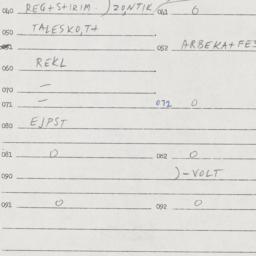 040 REG+S+IRIM. )ZONTIK 041 0
050 TALESKO,T+
051 052 ARBEKA+FES
060 REKL
070 —
071 — 072 0
080 EJPST
081 0 082 0
090 )-VOLT
091 0 092 0